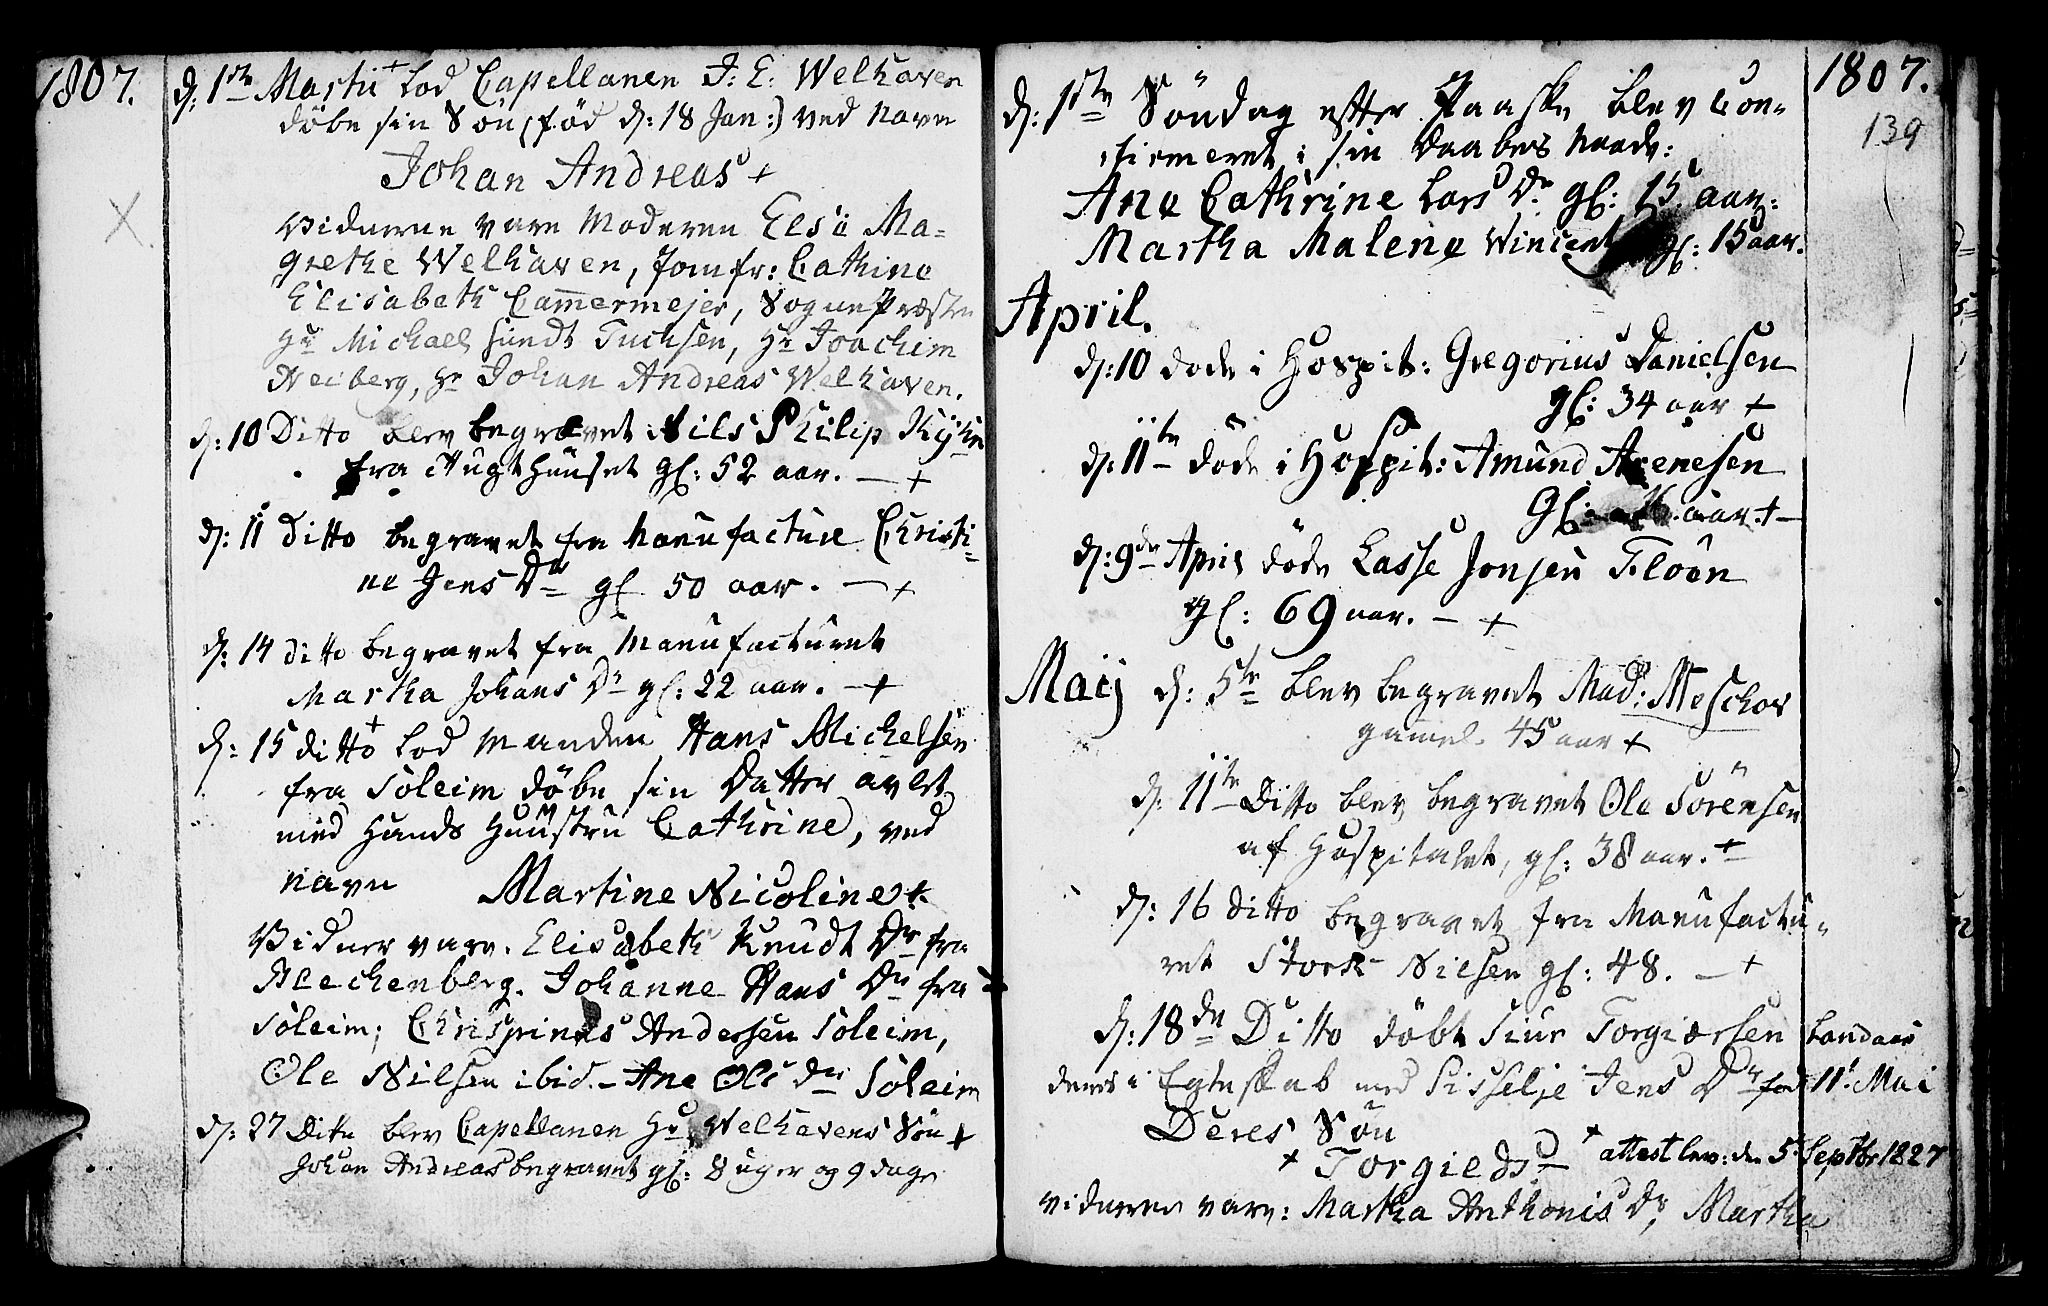 1807.
d: 1ste Martii + lod Capellanen J: E: Welhaven
döbe sin Sön (fød d: 18 Jan:) ved Navn
Johan Andreas +
Vidnerne vare Moderen Elsö Ma-
grethe Welhaven, Jomfr: Cathine
Elisabeth Cam̄ermejer, Sognepræsten
Hr Michael Sundt Tuchsen, Hr Joachim
Neiberg, Hr Johan Andreas Welhaven.
d: 10 Ditto blev begravet Nils Philip
fra Tugthuuset gl: 52 aar. — +
d: 11 Ditto begravet fra Manufacture Christi-
ne Jens Dr gl 50 aar. — +
d: 14 ditto begravet fra Manufacturet
Martha Johans Dr gl: 22 aar. — +
d: 15 ditto + lod Manden Hans Michelsen
fra Soleim döbe sin Datter avlet
med Hands Huustru Cathrine, ved
Navn Martine Nicoline +.
Vidner vare. Elisabeth Knudt Dr fra
Blechenberg. Johanne Hans Dr fra
Soleim; Chrispinus Andersen Soleim,
Ole Nilsen ibid. - Ane Ols dr Soleim
d: 27 Ditto blev Capellanen Hr Welhavens Sön +
Johan Andreas begravet gl: 8 uger og 9 dage
1807.
139
d: 1ste Söndag efter Paaske blev Con-
firmeret i sin Daabes Naade:
Ane Cathrine Lars Dr gl: 15 aar.
Martha Malene Wincent gl: 15 aar.
April.
d: 10 döde i Hospit: Gregorius Danielsen
gl: 34 aar +
d: 11te döde i Hospit: Amund Arenesen
gl: aar. + —
d: 9de April döde Lasse Jonsen Flöen
gl: 69 aar. — +
Maij d: 5te blev begravet Mad: Meschor
gam̄el. 45 aar +
d: 11te Ditto blev begravet Ole Sörensen
af Hospitalet, gl: 38 aar. +
d: 16 ditto begravet fra Manufactu-
ret Stork Nilsen gl: 48. — +
d: 18de Ditto döbt Siur Torgiersen Landaas
deres i Egteskab med Sisselje Jens Dr fød 11t Mai
Deres Sön
+ Torgieds + attest lev: den 5 Septbr 1827
vidnerne vare: Martha Anthonis Dr, Martha